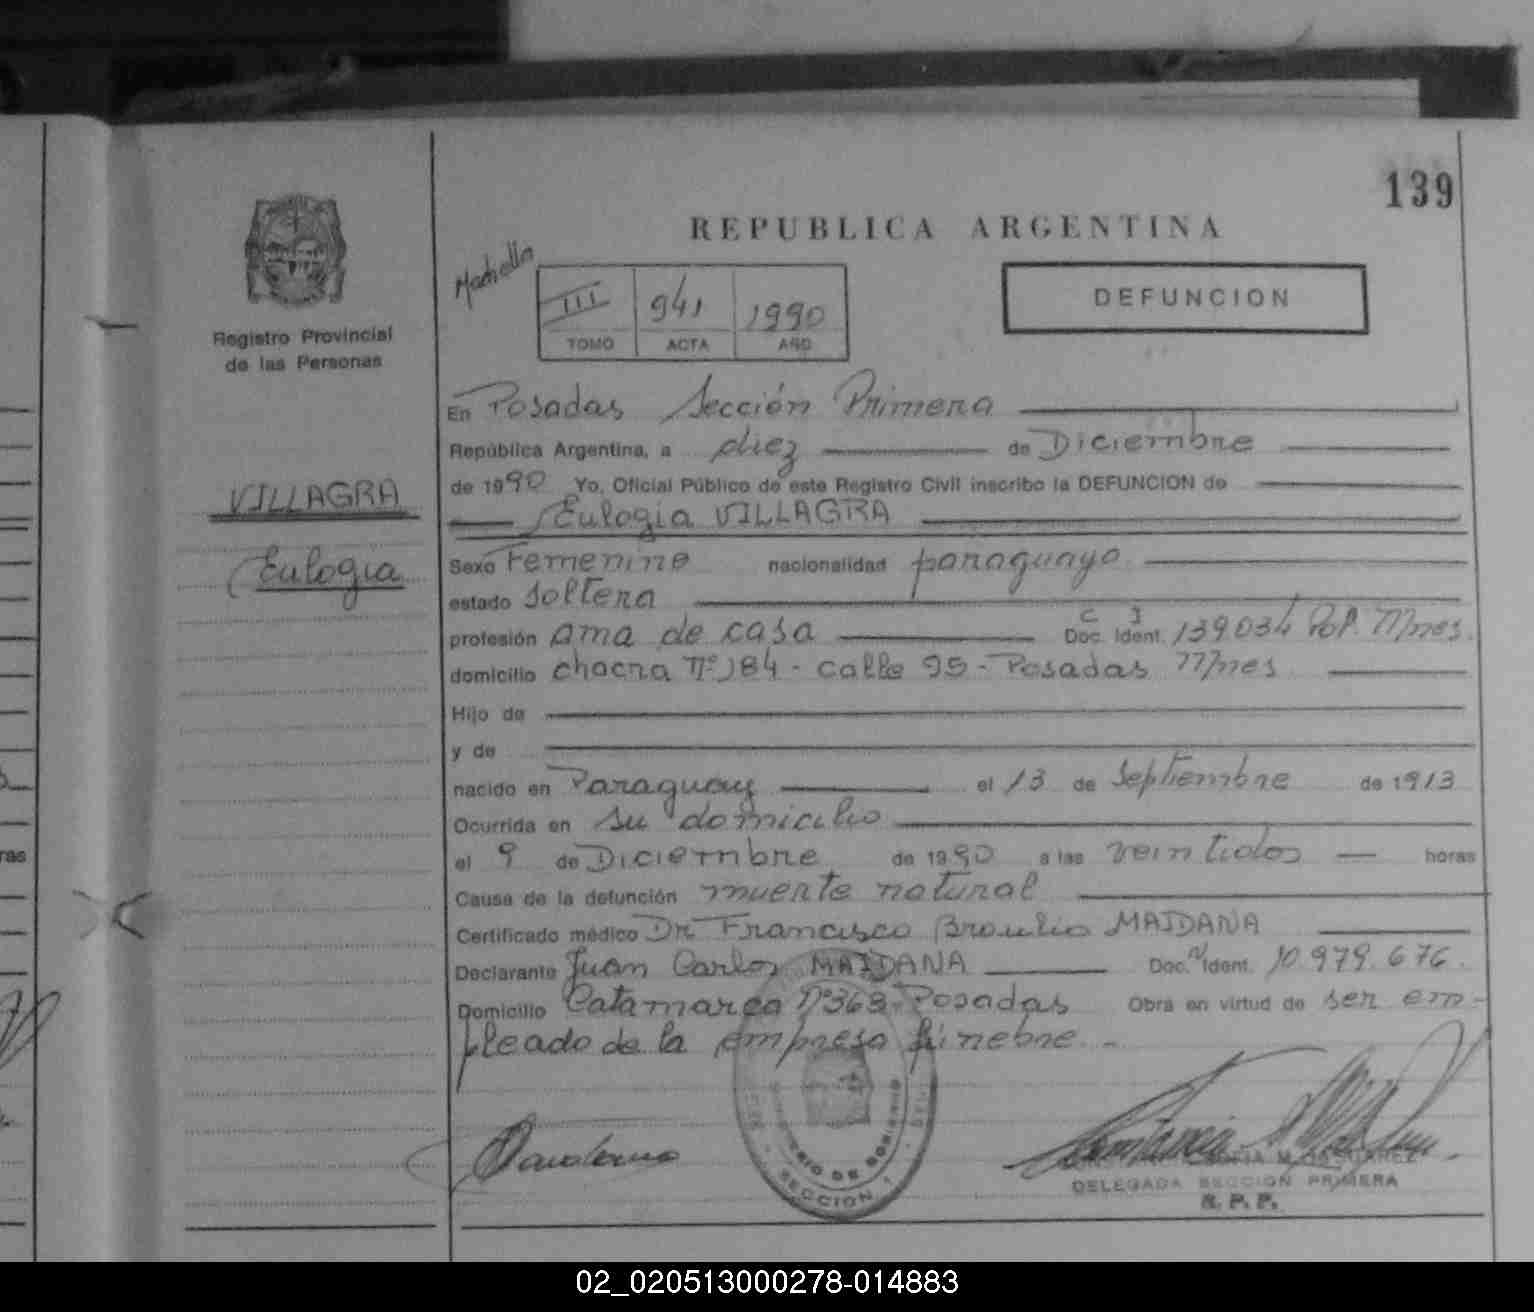 139
REPUBLICA ARGENTINA
DEFUNCION
III 941 1990
TOMO ACTA AÑO
Registro Provincial
de las Personas
VILLAGRA
Eulogia
En Posadas Sección Primera
República Argentina, a diez de Diciembre
de 1990 Yo, Oficial Público de este Registro Civil inscribo la DEFUNCION de
Eulogia VILLAGRA
Sexo Femenino nacionalidad paraguaya
estado soltera
profesión ama de casa Doc. Ident. C I 139034 Pol. M/nes.
domicilio chacra Nº 184 - calle 95 - Posadas M/nes
Hijo de
y de
nacido en Paraguay el 13 de Septiembre de 1913
Ocurrida en su domicilio
el 9 de Diciembre de 1990 a las veintidos horas
Causa de la defunción muerte natural
Certificado médico Dr Francisco Braulio MAIDANA
Declarante Juan Carlos MAIDANA Doc. Ident. 10.979.676.
Domicilio Catamarca Nº 368 - Posadas Obra en virtud de ser em-
pleado de la empresa fúnebre.-
MINISTERIO DE GOBIERNO
SECCION 1
DELEGADA SECCION PRIMERA
R. P. P.
02_020513000278-014883